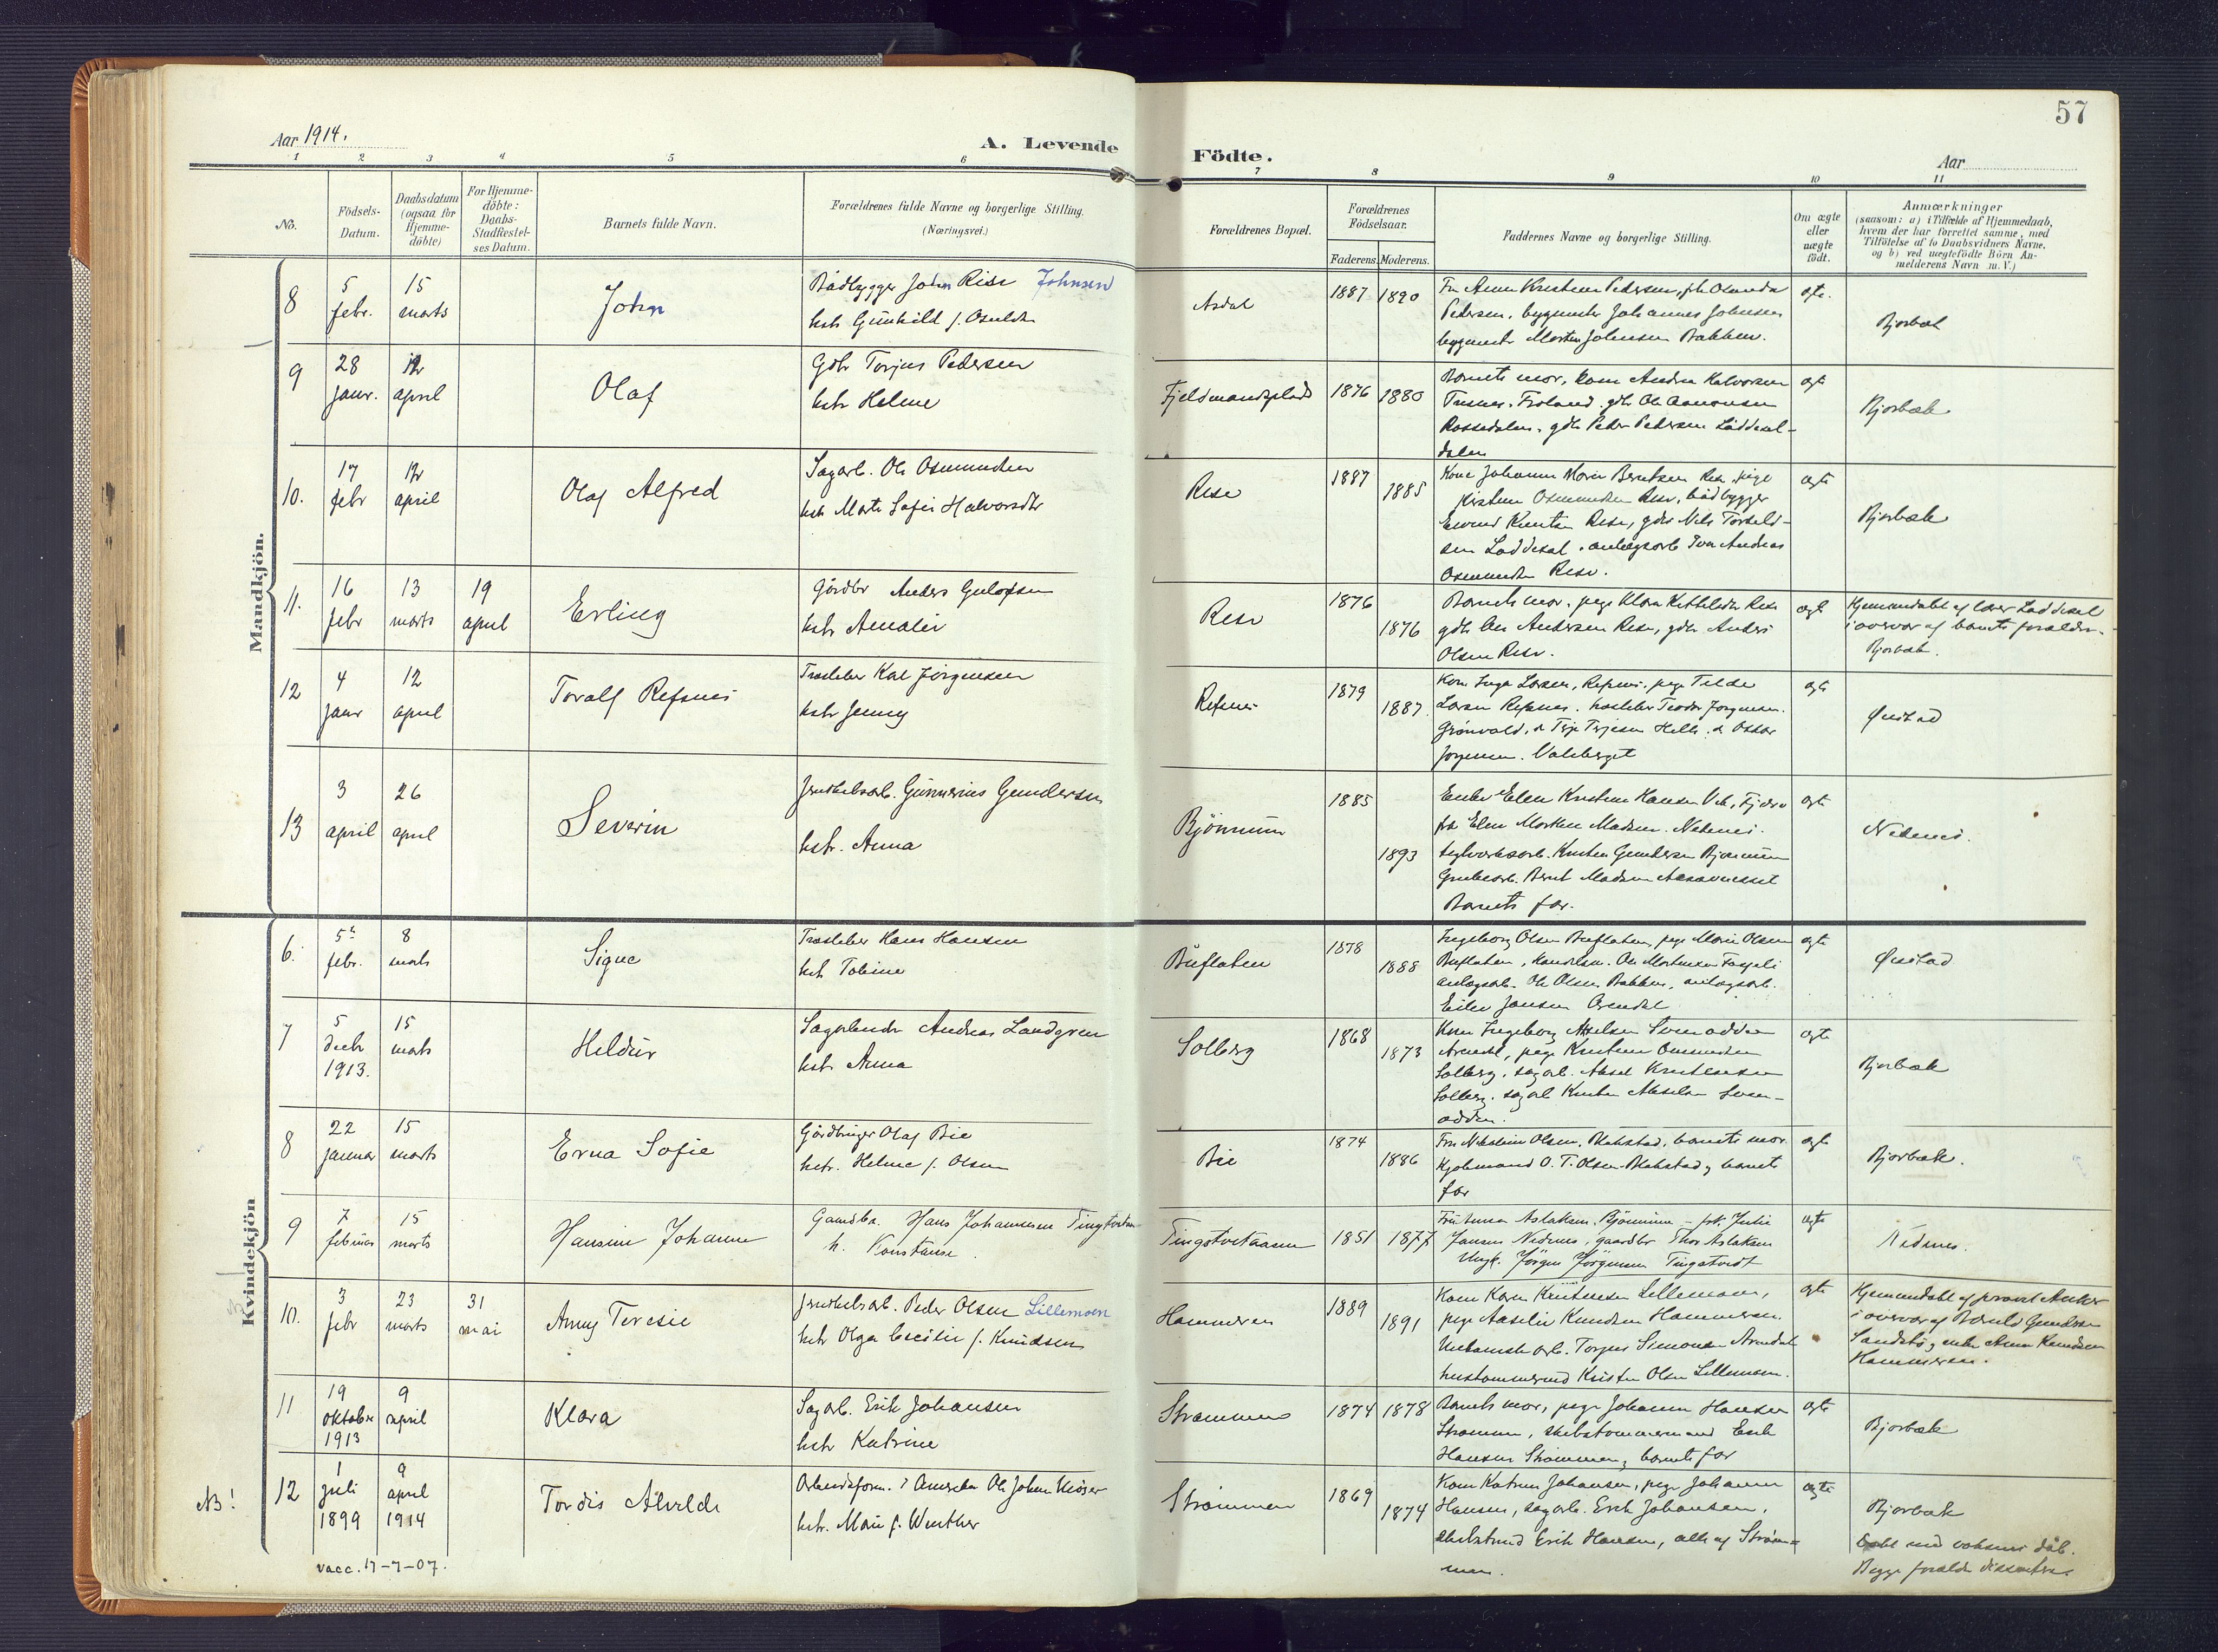 57
Aar 1914.
A. Levende
Födte.
Aar
1 2 3 4 5 6 7 8 9 10 11
No.
Födsels-
Datum.
Daabsdatum
(ogsaa for
Hjemme-
döbte)
For Hjemme-
döbte:
Daabs-
Stadfestel-
ses Datum.
Barnets fulde Navn.
Forældrenes fulde Navne og borgerlige Stilling.
(Næringsvei.)
Forældrenes Bopæl.
Forældrenes
Födselsaar.
Faderens. Moderens.
Faddernes Navne og borgerlige Stilling.
Om ægte
eller
uægte
födt.
Anmærkninger
(saasom: a) i Tilfælde af Hjemmedaab,
hvem der har forrettet samme, med
Tilföielse af to Daabsvidners Navne.
og b) ved uægtefödte Börn An-
melderens Navn m. V.)
Mandkjön.
8
5
febr.
15
marts
John
Bådbygger John Rise Johnsen
hstr Gunhild f.
Asdal
1887 1890
Pedersen, bygmester Johannes Johnsen
bygmester Morten Johnsen Bakken.
ægte.
Bjorbæk
9
28
janr.
12
april
Olaf
Gdbr Torjus Pedersen
hstr Helene
Fjeldmandsplads
1876 1880
Barnets mor, kone Andrea Halvorsen
Froland. gdbr Ole Aanonsen
Rossedalen, gdbr Peder Pedersen Løddesøl-
dalen
ægte
Bjorbæk
10.
17
febr
12
april
Olaf Alfred
Sagarb. Ole Osmundsen
hstr Marte Sofie Halvorsdtr
Rise
1887 1885
Kone Johanne Marie Berntsen Rise, pige
Kirstine Osmundsen Rise, bådbygger
Eivind Knutsen Rise, gdbr Nils Torkeld-
sen Løddesøl. anlægsarb Andreas
Osmundsen Rise.
ægte
Bjorbæk
11.
16
febr
13
marts
19
april
Erling
Gårdbr Anders Gulofsen
hstr Amalie
Rise
1876 1876
Barnets mor, pige Klara Kittelsdtr Rise
gdbr Andersen Rise, gdbr Anders
Olsen Rise.
ægte
Hjemmedøbt af lærer Løddesøl
i overvær af barnets forældre.
Bjorbæk.
12
4
janr
12
april
Toralf Refsnes
Træsleber Karl Jørgensen
hstr Jenny
Refsnes
1879 1887
Kone Inga Larsen, Refsnes, pige Tilda
Larsen Refsnes. træsleber Teodor Jørgensen.
Grønvold. Terje Terjesen Helle. Oskar
Jørgensen. Valeberget
ægte
Øiestad
13
3
april
26
april
Severin
Jernskibsarb. Gunnerius Gundersen
hstr. Anna
Bjönnum
1885 1893
Enke Elen Kirstine Hansen Fjære
frk Elen Marthe Madsen. Nedenes.
teglværksarb. Kristen Gundersen Bjønnum
Grubearb. Bernt Madsen
Barnets far.
ægte
Nedenes.
Kvindekjön
6.
5te
febr.
8
marts
Signe
Træsleber Hans Hansen
hstr Tobine
Buflaten
1878 1888
Ingeborg Olsen Buflaten, pige Marie Olsen
Buflaten, Ole Mortensen
anlægsarb. Ole Olsen Bakken, anlægsarb.
Eilev Jansen Arendal
ægte
Øiestad
7
5
decbr
1913.
15
marts
Heldür
Sagarbeider Andreas Landgren
hstr Anna
Solberg
1868 1873
Kone Ingeborg Axelsen
Arendal, pige Kristine Osmundsen
Solberg. sagarb. Aksel Kristensen
Solberg. sagarb
odden.
ægte
Bjorbæk
8
22
januar
15
marts
Erna Sofie
Gårdbruger Olaf Bie
hstr. Helene f. Olsen
Bie
1874 1886
Fru Nikoline Olsen. Blakstad, barnets mor
Kjøbmand O. T. Olsen. Blakstad, barnets
far
ægte
Bjorbæk.
9
7
februar
15
marts
Hansine Johanne
Gaardbr. Hans Johannesen Tingtveitn
h. Konstanse.
Tingstveitaasen
1851 1877
Aslaksen. Bjønnum – frk. Julie
Jansen Nedenes, gaardbr Thor Aslaksen
Ungk. Jörgen Jörgensen Tingstveit
ægte
Nedenes.
10.
3
febr
23
marts
31
mai
Anny Teresie
Jernskibsarb. Peder Olsen Lillemoen
hstr Olga Cecilie f. Knudsen
Hammeren
1889 1891
Kone Karen Kristensen Lillemoen,
pige Aaselie Knudsen Hammeren.
arb. Torjus Simonsen Arendal
hustømmermand Kristen Olsen Lillemoen.
ægte
Hjemmedøbt af provst
i overvær af Gundersen
Sandstø, enke Anna Knudsen
Hammeren.
11
19
oktober
1913
9
april
Klara
Sagarb. Erik Johansen
hstr Katrine
Strømmen
1874 1878
Barnets mor, pige Johanne Hansen
Strømmen, skibstømmermand Erik
Hansen Strømmen, barnets far
ægte
Bjorbæk
NB!
12
1
juli
1899
9
april
1914
Tordis Alvilde
Arbeidsform. i Amerika Ole Johan
hstr. Marie f. Winther
Strømmen
1869 1874
Kone Katrine Johansen, pige Johanne
Hansen, sagarb. Erik Johansen,
Erik Hansen, alle af Strøm-
men.
ægte
Bjorbæk
Døbt med voksnes dåb.
Begge forældre dissentere
vacc. 17-7-07.